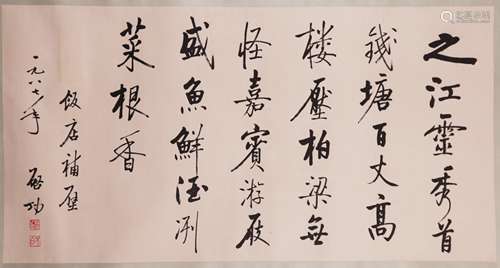 之江靈秀首
錢塘百丈高
楼壓柏梁無
怪嘉賓游屐
盛魚鮮酒冽
菜根香
一九八七年
飯店補壁
啟功